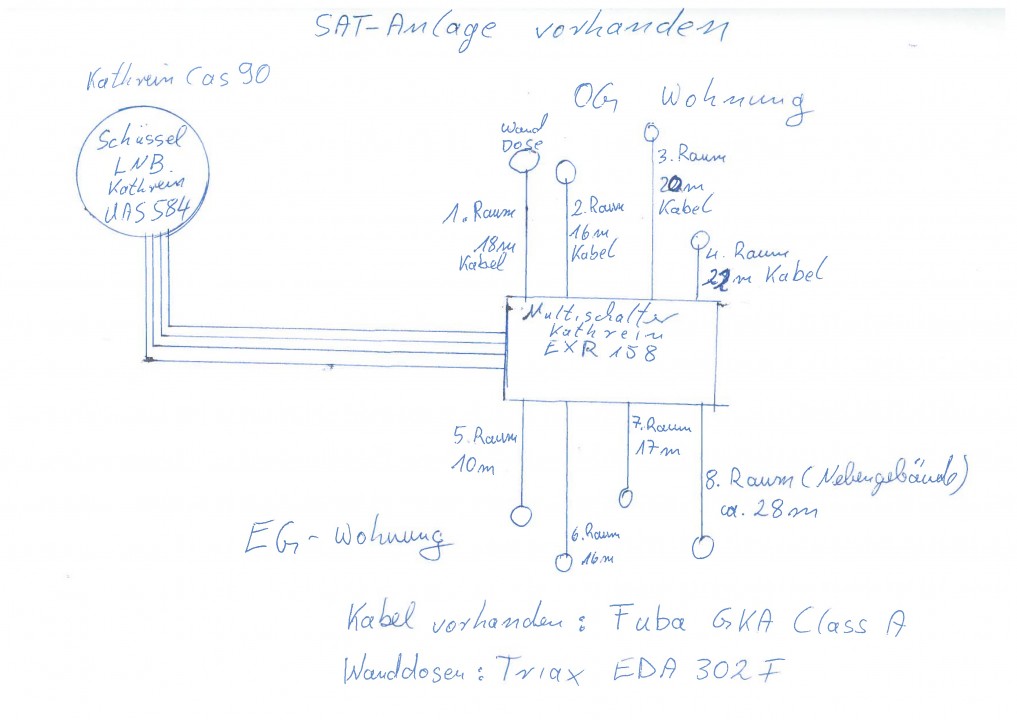 SAT-Anlage vorhanden
Kathrein Cas 90
Schüssel
LNB.
Kathrein
UAS 584
OG Wohnung
Wand
Dose
1. Raum
18m
Kabel
2. Raum
16m
Kabel
3. Raum
20m
Kabel
4. Raum
22m Kabel
Multischalter
Kathrein
EXR 158
5. Raum
10m
6. Raum
16m
7. Raum
17m
8. Raum (Nebengebäude)
ca. 28m
EG-Wohnung
Kabel vorhanden: Fuba GKA Class A
Wanddosen: Triax EDA 302 F